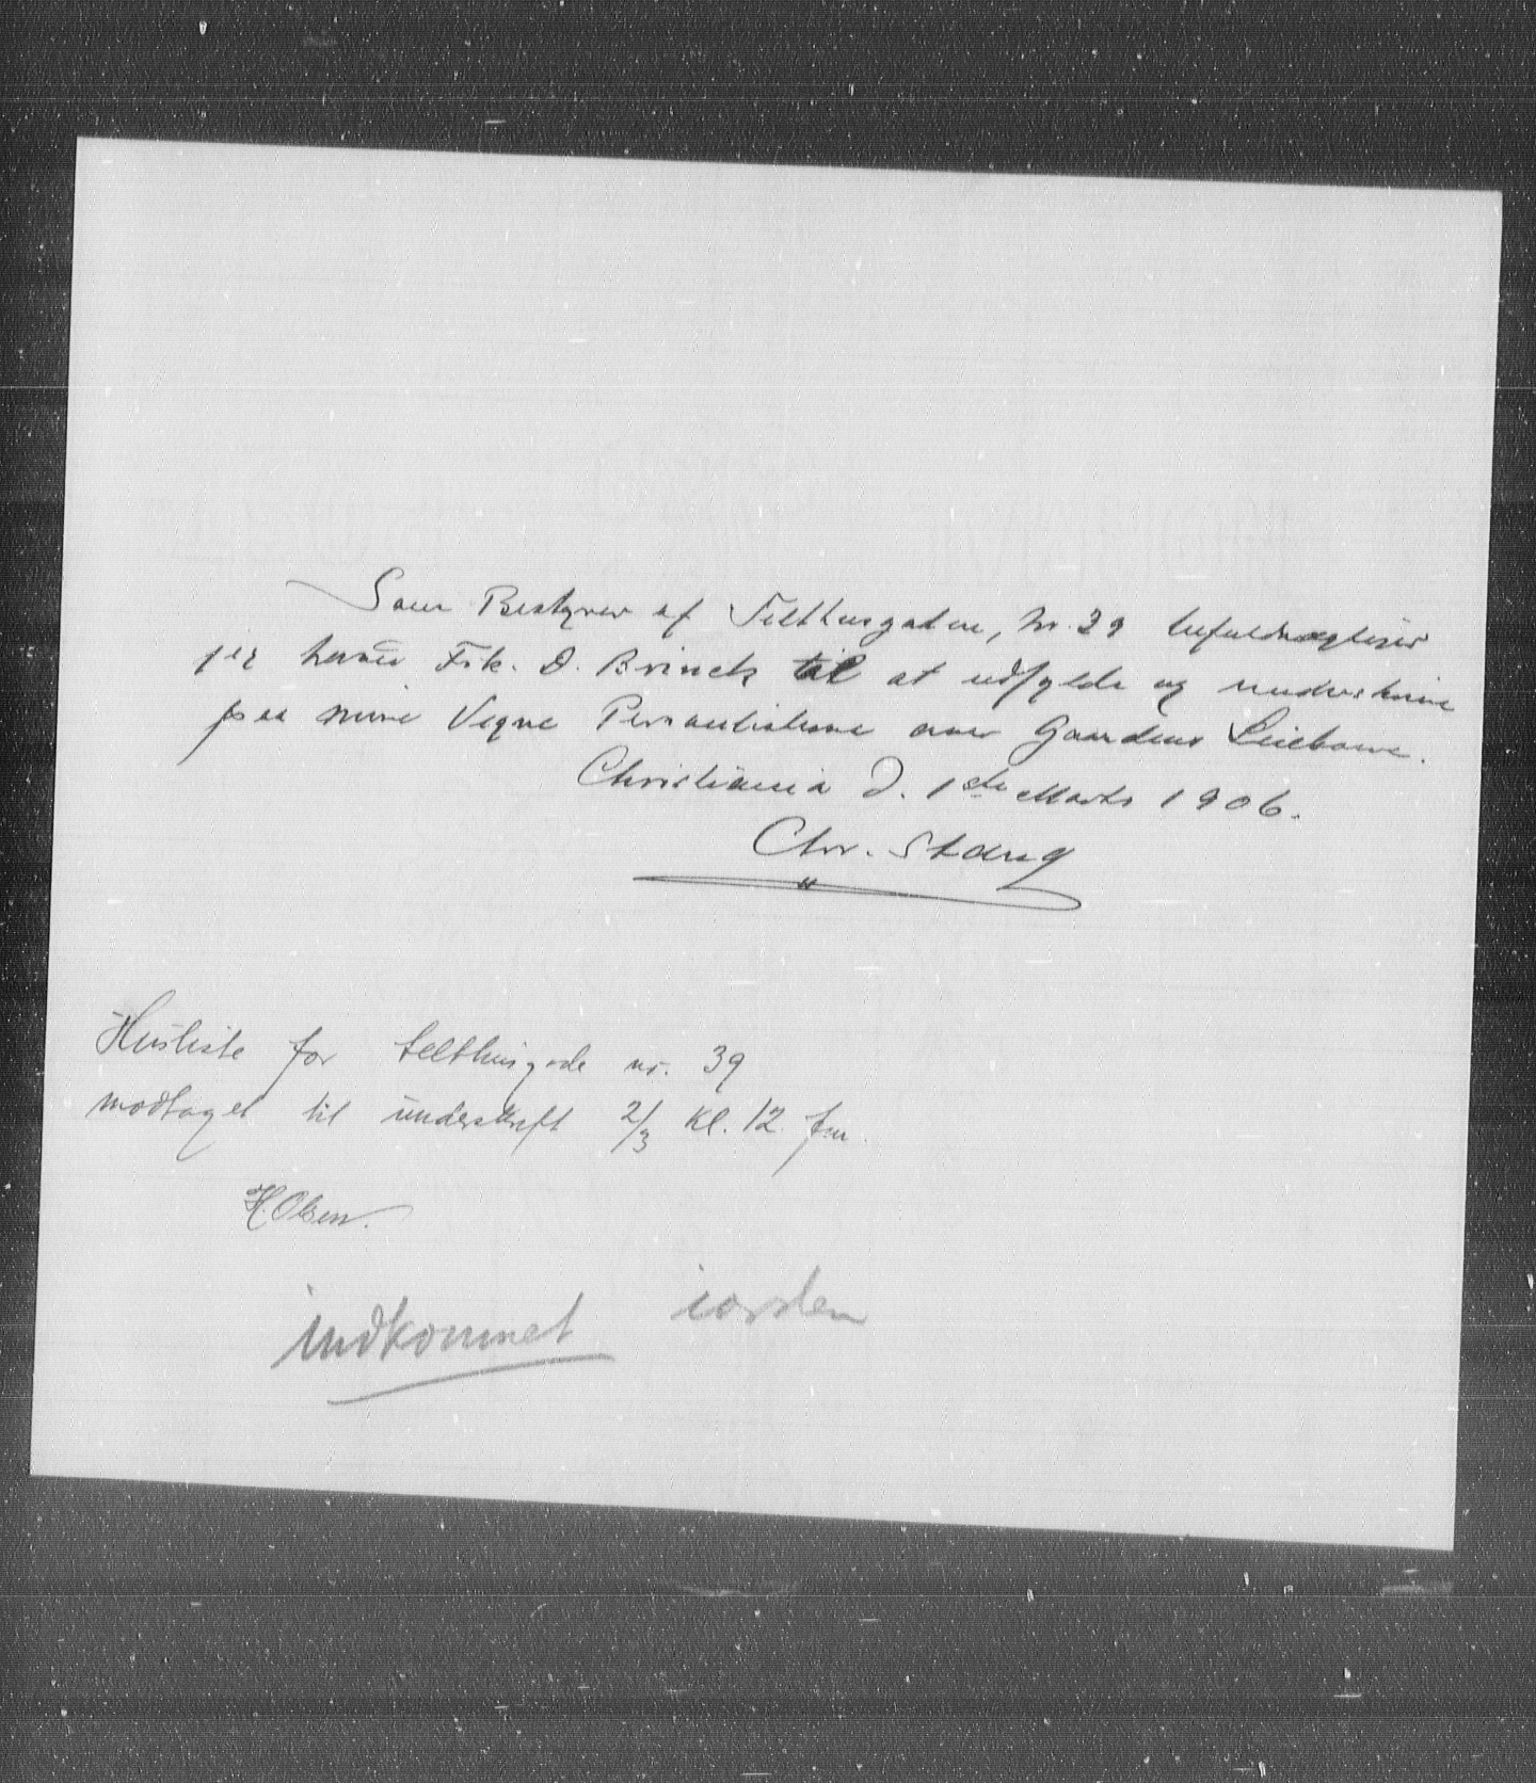 Som Bestyrer af Telthusgaden, Nr. 39 befuldmægtiger
jeg herved Frk. D. Brinck til at udfylde og underskrive
paa mine Vegne Personlisterne over Gaardens Leieboere.
Christiania d. 1ste Marts 1906.
Chr. Stang
Husliste for telthusgade nr. 39
modtaget til underskrift 2/3 Kl. 12 fm.
H. Olsen.
indkommet